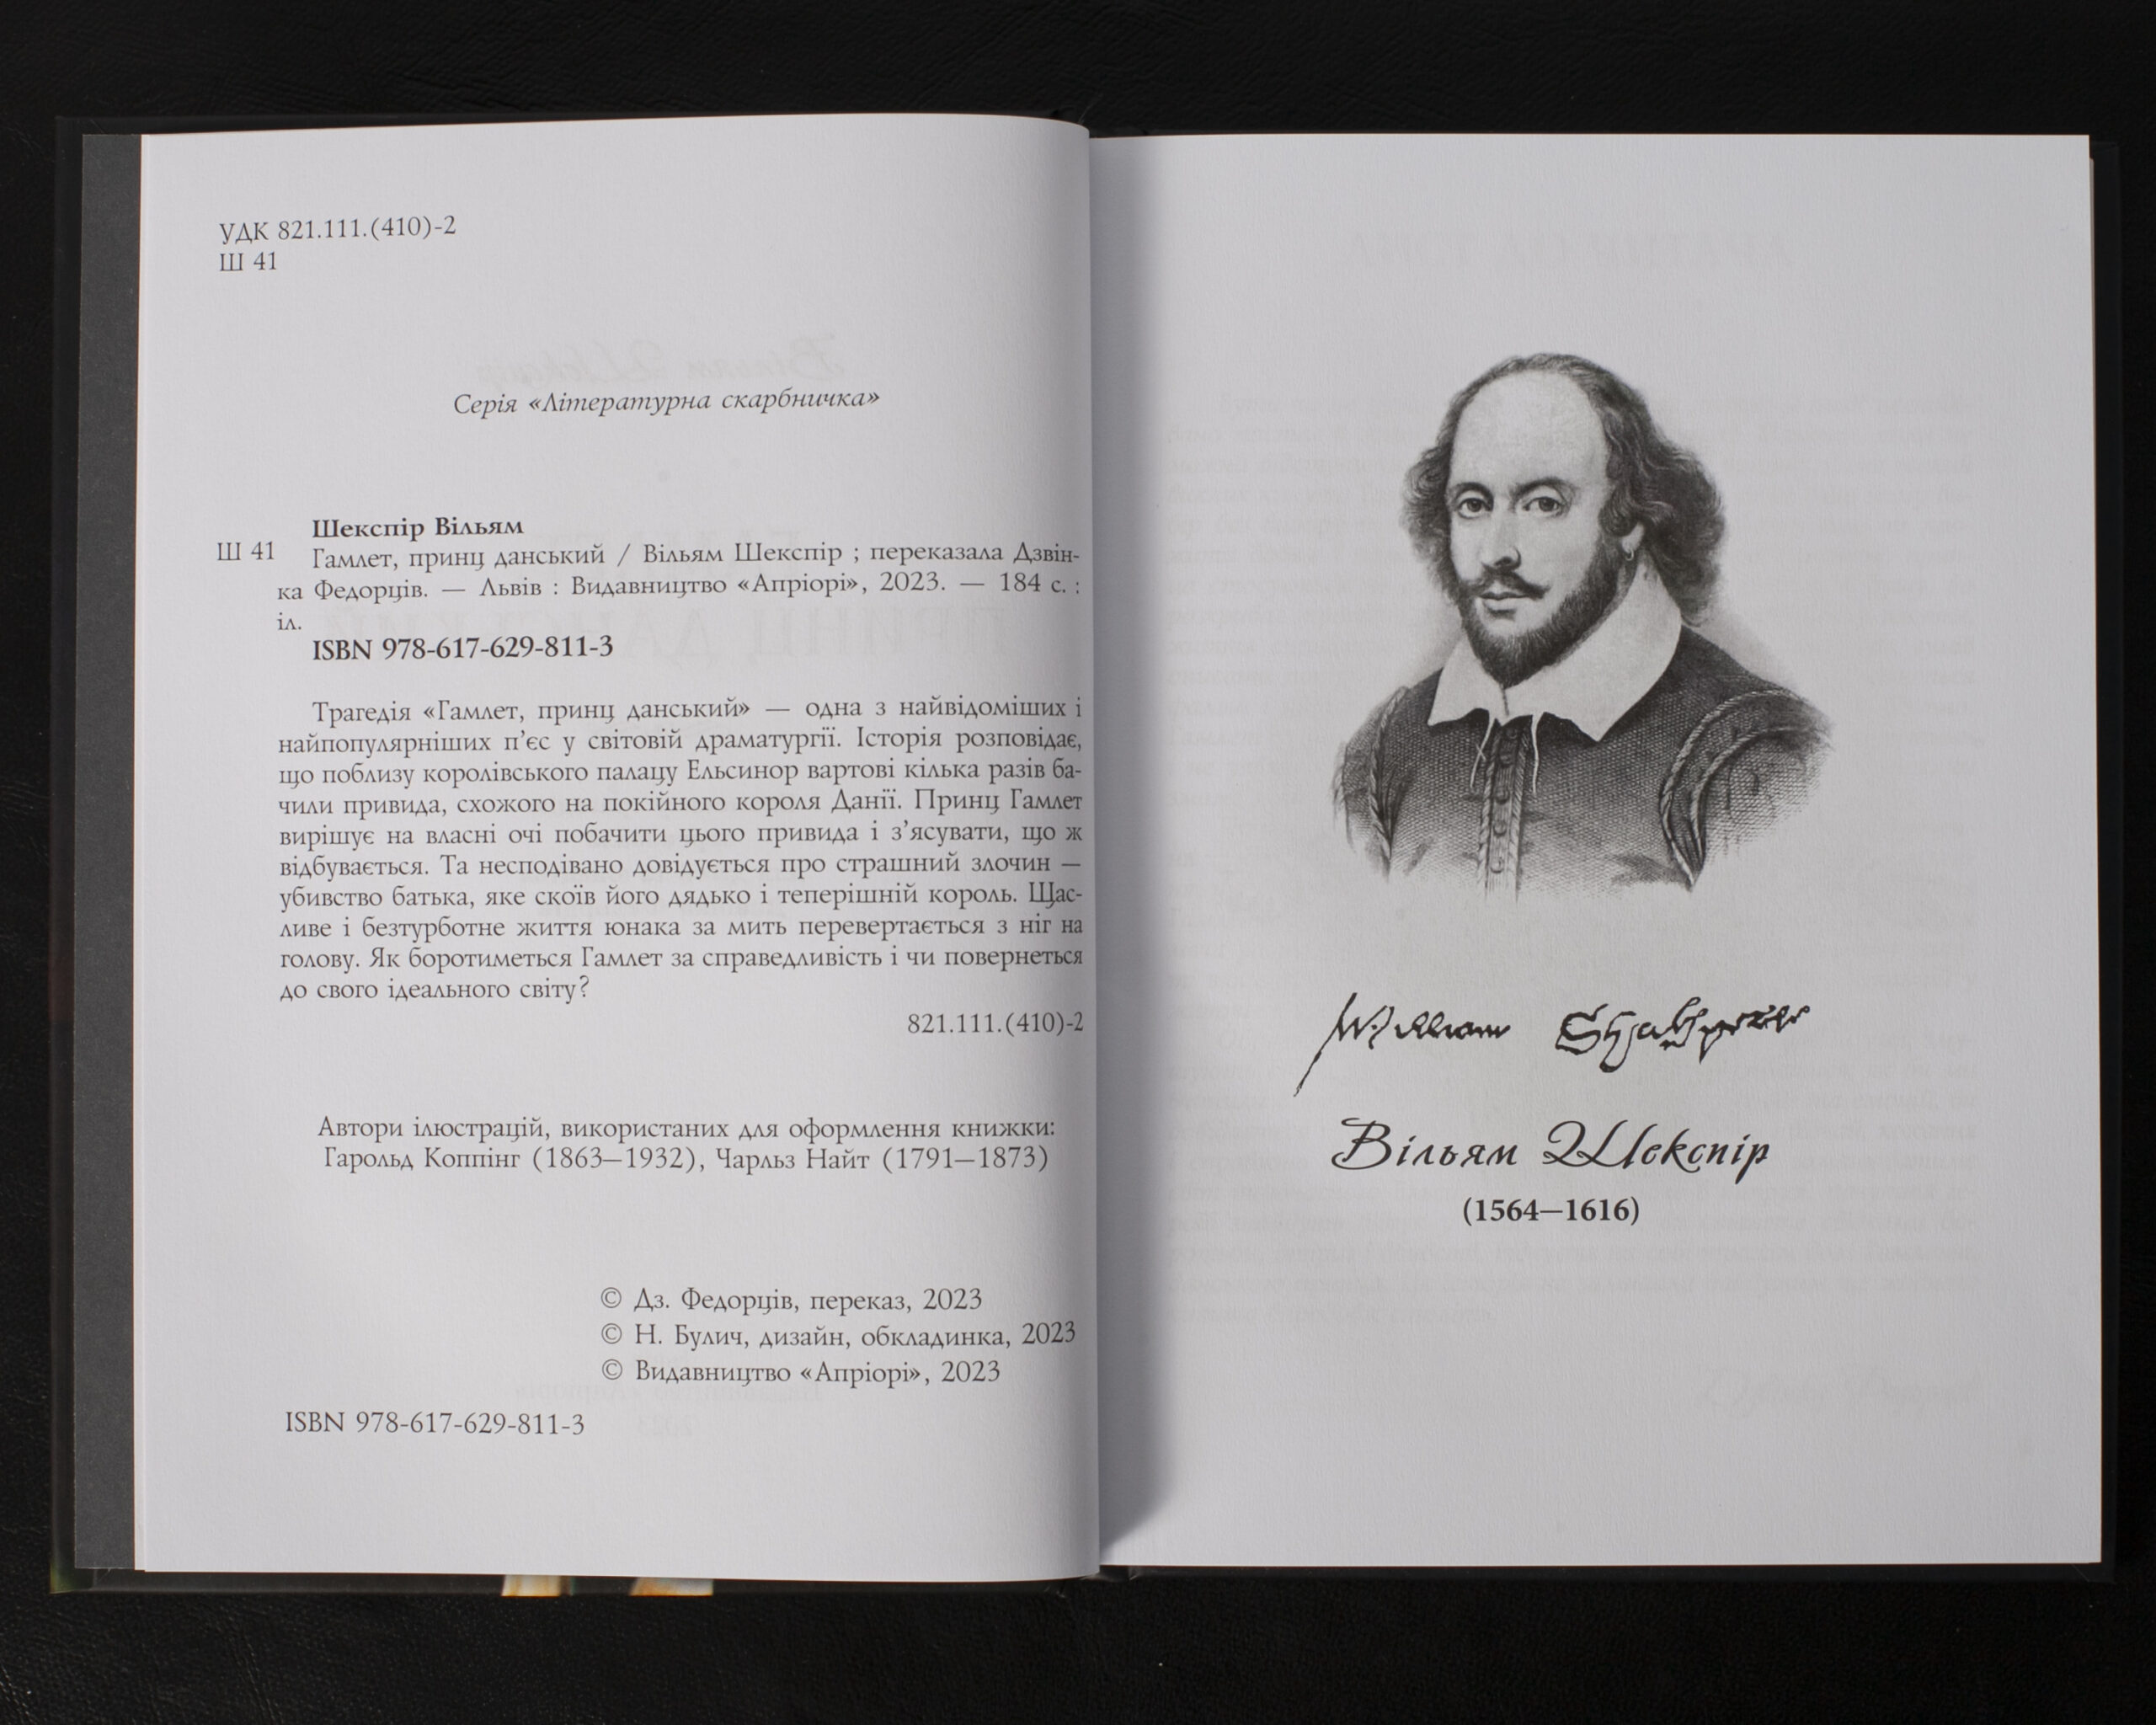 УДК 821.111.(410)-2
Ш 41
Серія «Літературна скарбничка»
Шекспір Вільям
Ш 41 Гамлет, принц данський / Вільям Шекспір ; переказала Дзвін-
ка Федорців. — Львів : Видавництво «Апріорі», 2023. — 184 с. :
іл.
ISBN 978-617-629-811-3
Трагедія «Гамлет, принц данський» — одна з найвідоміших і
найпопулярніших п’єс у світовій драматургії. Історія розповідає,
що поблизу королівського палацу Ельсинор вартові кілька разів ба-
чили привида, схожого на покійного короля Данії. Принц Гамлет
вирішує на власні очі побачити цього привида і з’ясувати, що ж
відбувається. Та несподівано довідується про страшний злочин —
убивство батька, яке скоїв його дядько і теперішній король. Щас-
ливе і безтурботне життя юнака за мить перевертається з ніг на
голову. Як боротиметься Гамлет за справедливість і чи повернеться
до свого ідеального світу?
821.111.(410)-2
Автори ілюстрацій, використаних для оформлення книжки:
Гарольд Коппінг (1863—1932), Чарльз Найт (1791—1873)
© Дз. Федорців, переказ, 2023
© Н. Булич, дизайн, обкладинка, 2023
© Видавництво «Апріорі», 2023
ISBN 978-617-629-811-3
William
Вільям Шекспір
(1564—1616)